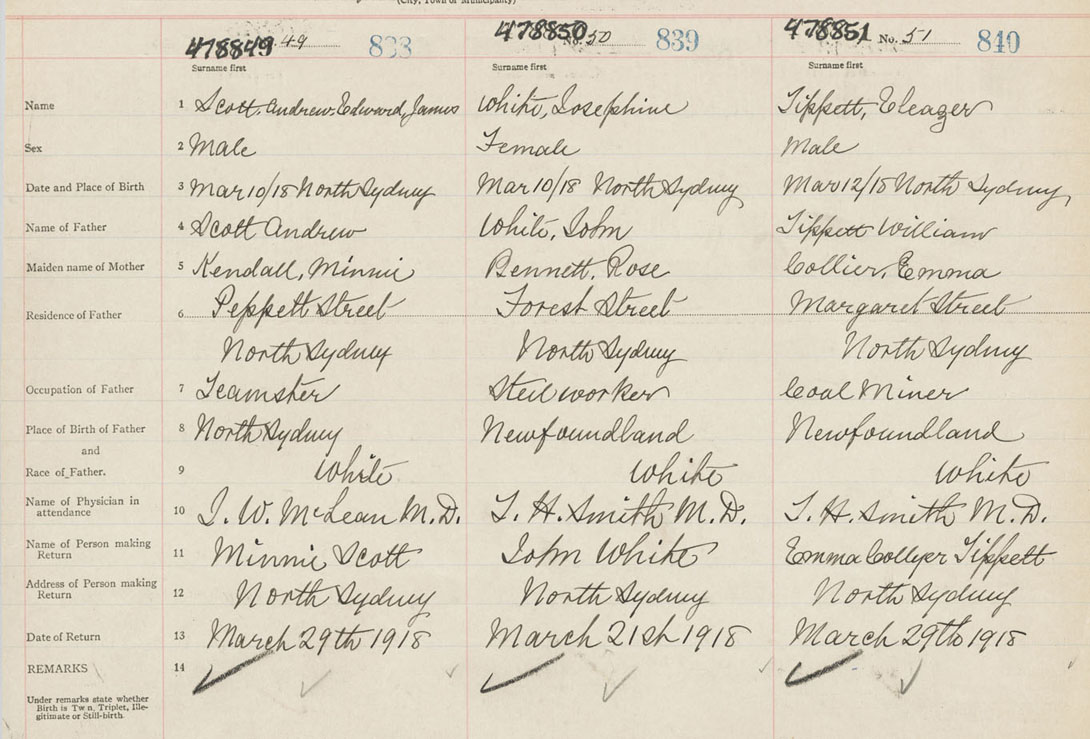 (City, Town or Municipality)
478849 49 833 478850 No. 50 839 478851 No. 51 840
Surname first Surname first Surname first
Name 1 Scott, Andrew, Edward, James White, Josephine Tippett, Eleazer
Sex 2 Male Female Male
Date and Place of Birth 3 Mar 10/18 North Sydney Mar 10/18 North Sydney Mar 12/18 North Sydney
Name of Father 4 Scott Andrew White, John Tippett William
Maiden name of Mother 5 Kendall, Minnie Bennett, Rose Collier, Emma
Residence of Father 6 Peppett Street Forest Street Margaret Street
North Sydney North Sydney North Sydney
Occupation of Father 7 Teamster Steel worker Coal Miner
Place of Birth of Father 8 North Sydney Newfoundland Newfoundland
and
Race of Father. 9 White White White
Name of Physician in attendance 10 J. W. McLean M.D. T. H. Smith M.D. T. H. Smith M.D.
Name of Person making Return 11 Minnie Scott John White Emma Collyer Tippett
Address of Person making Return 12 North Sydney North Sydney North Sydney
Date of Return 13 March 29th 1918 March 21st 1918 March 29th 1918
REMARKS 14
Under remarks state whether
Birth is Twn, Triplet, Ille-
gitimate or Still-birth.